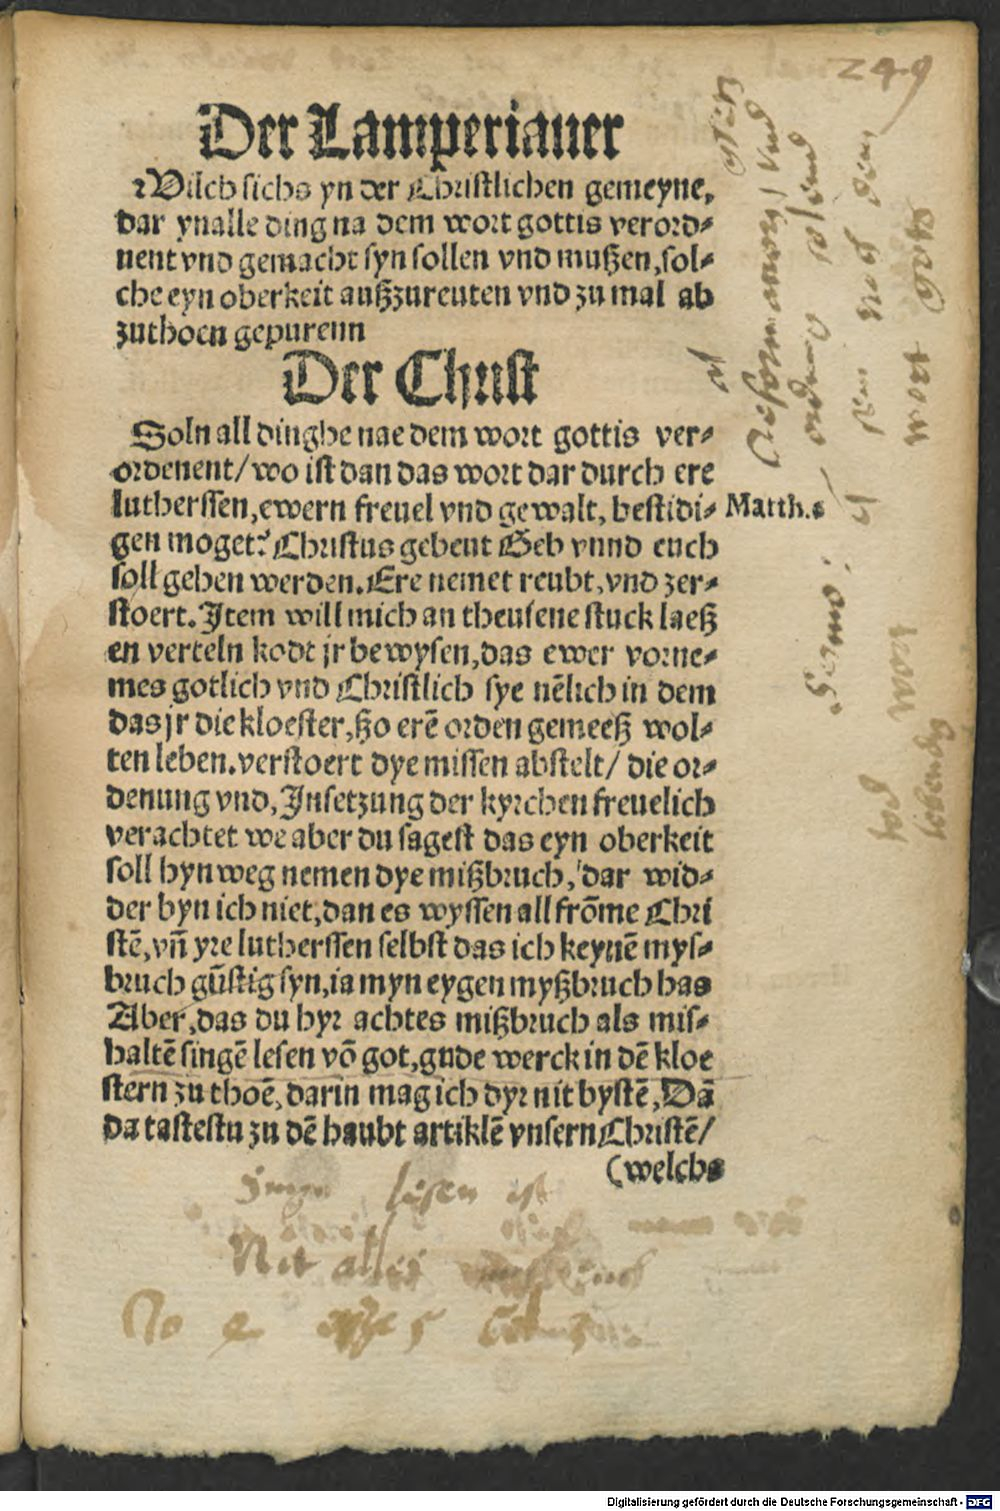 249
Der Lamperiauer
Wilch sichs yn der Christlichen gemeyne,
dar ynalle ding na dem wort gottis verord⸗
nent vnd gemacht syn sollen vnd mußen, sol⸗
che eyn oberkeit außzureuten vnd zu mal ab
zuthoen gepurenn
Der Christ
Soln all dinghe nae dem wort gottis ver⸗
ordenent/ wo ist dan das wort dar durch ere
lutherssen, ewern freuel vnd gewalt, bestidi⸗
gen moget? Christus gebeut Geb vnnd euch
soll geben werden. Ere nemet reubt, vnd zer⸗
stoert. Item will mich an theusene stuck laeß
en verteln kodt jr bewysen, das ewer vorne⸗
mes gotlich vnd Christlich sye nẽlich in dem
das jr die kloester, ßo erẽ orden gemeeß wol⸗
ten leben. verstoert dye missen abstelt/ die or⸗
denung vnd, Insetzung der kyrchen freuelich
verachtet we aber du sagest das eyn oberkeit
soll hynweg nemen dye mißbruch, dar wid⸗
der byn ich niet, dan es wyssen all frõme Chri
stẽ, vñ yre lutherssen selbst das ich keynẽ mys⸗
bruch gũstig syn, ia myn eygen myßbruch has
Aber, das du hyr achtes mißbruch als mis⸗
haltẽ singẽ lesen võ got, gude werck in dẽ kloe
stern zu thoẽ, darin mag ich dyr nit bystẽ, Dã
da tastestu zu dẽ haubt artiklẽ vnsern Christẽ/
(welchs
Matth. s
Reformation vnd
ordnung
nach dem
wort gotts
wort
lebendig
lesen ist
Nit alles